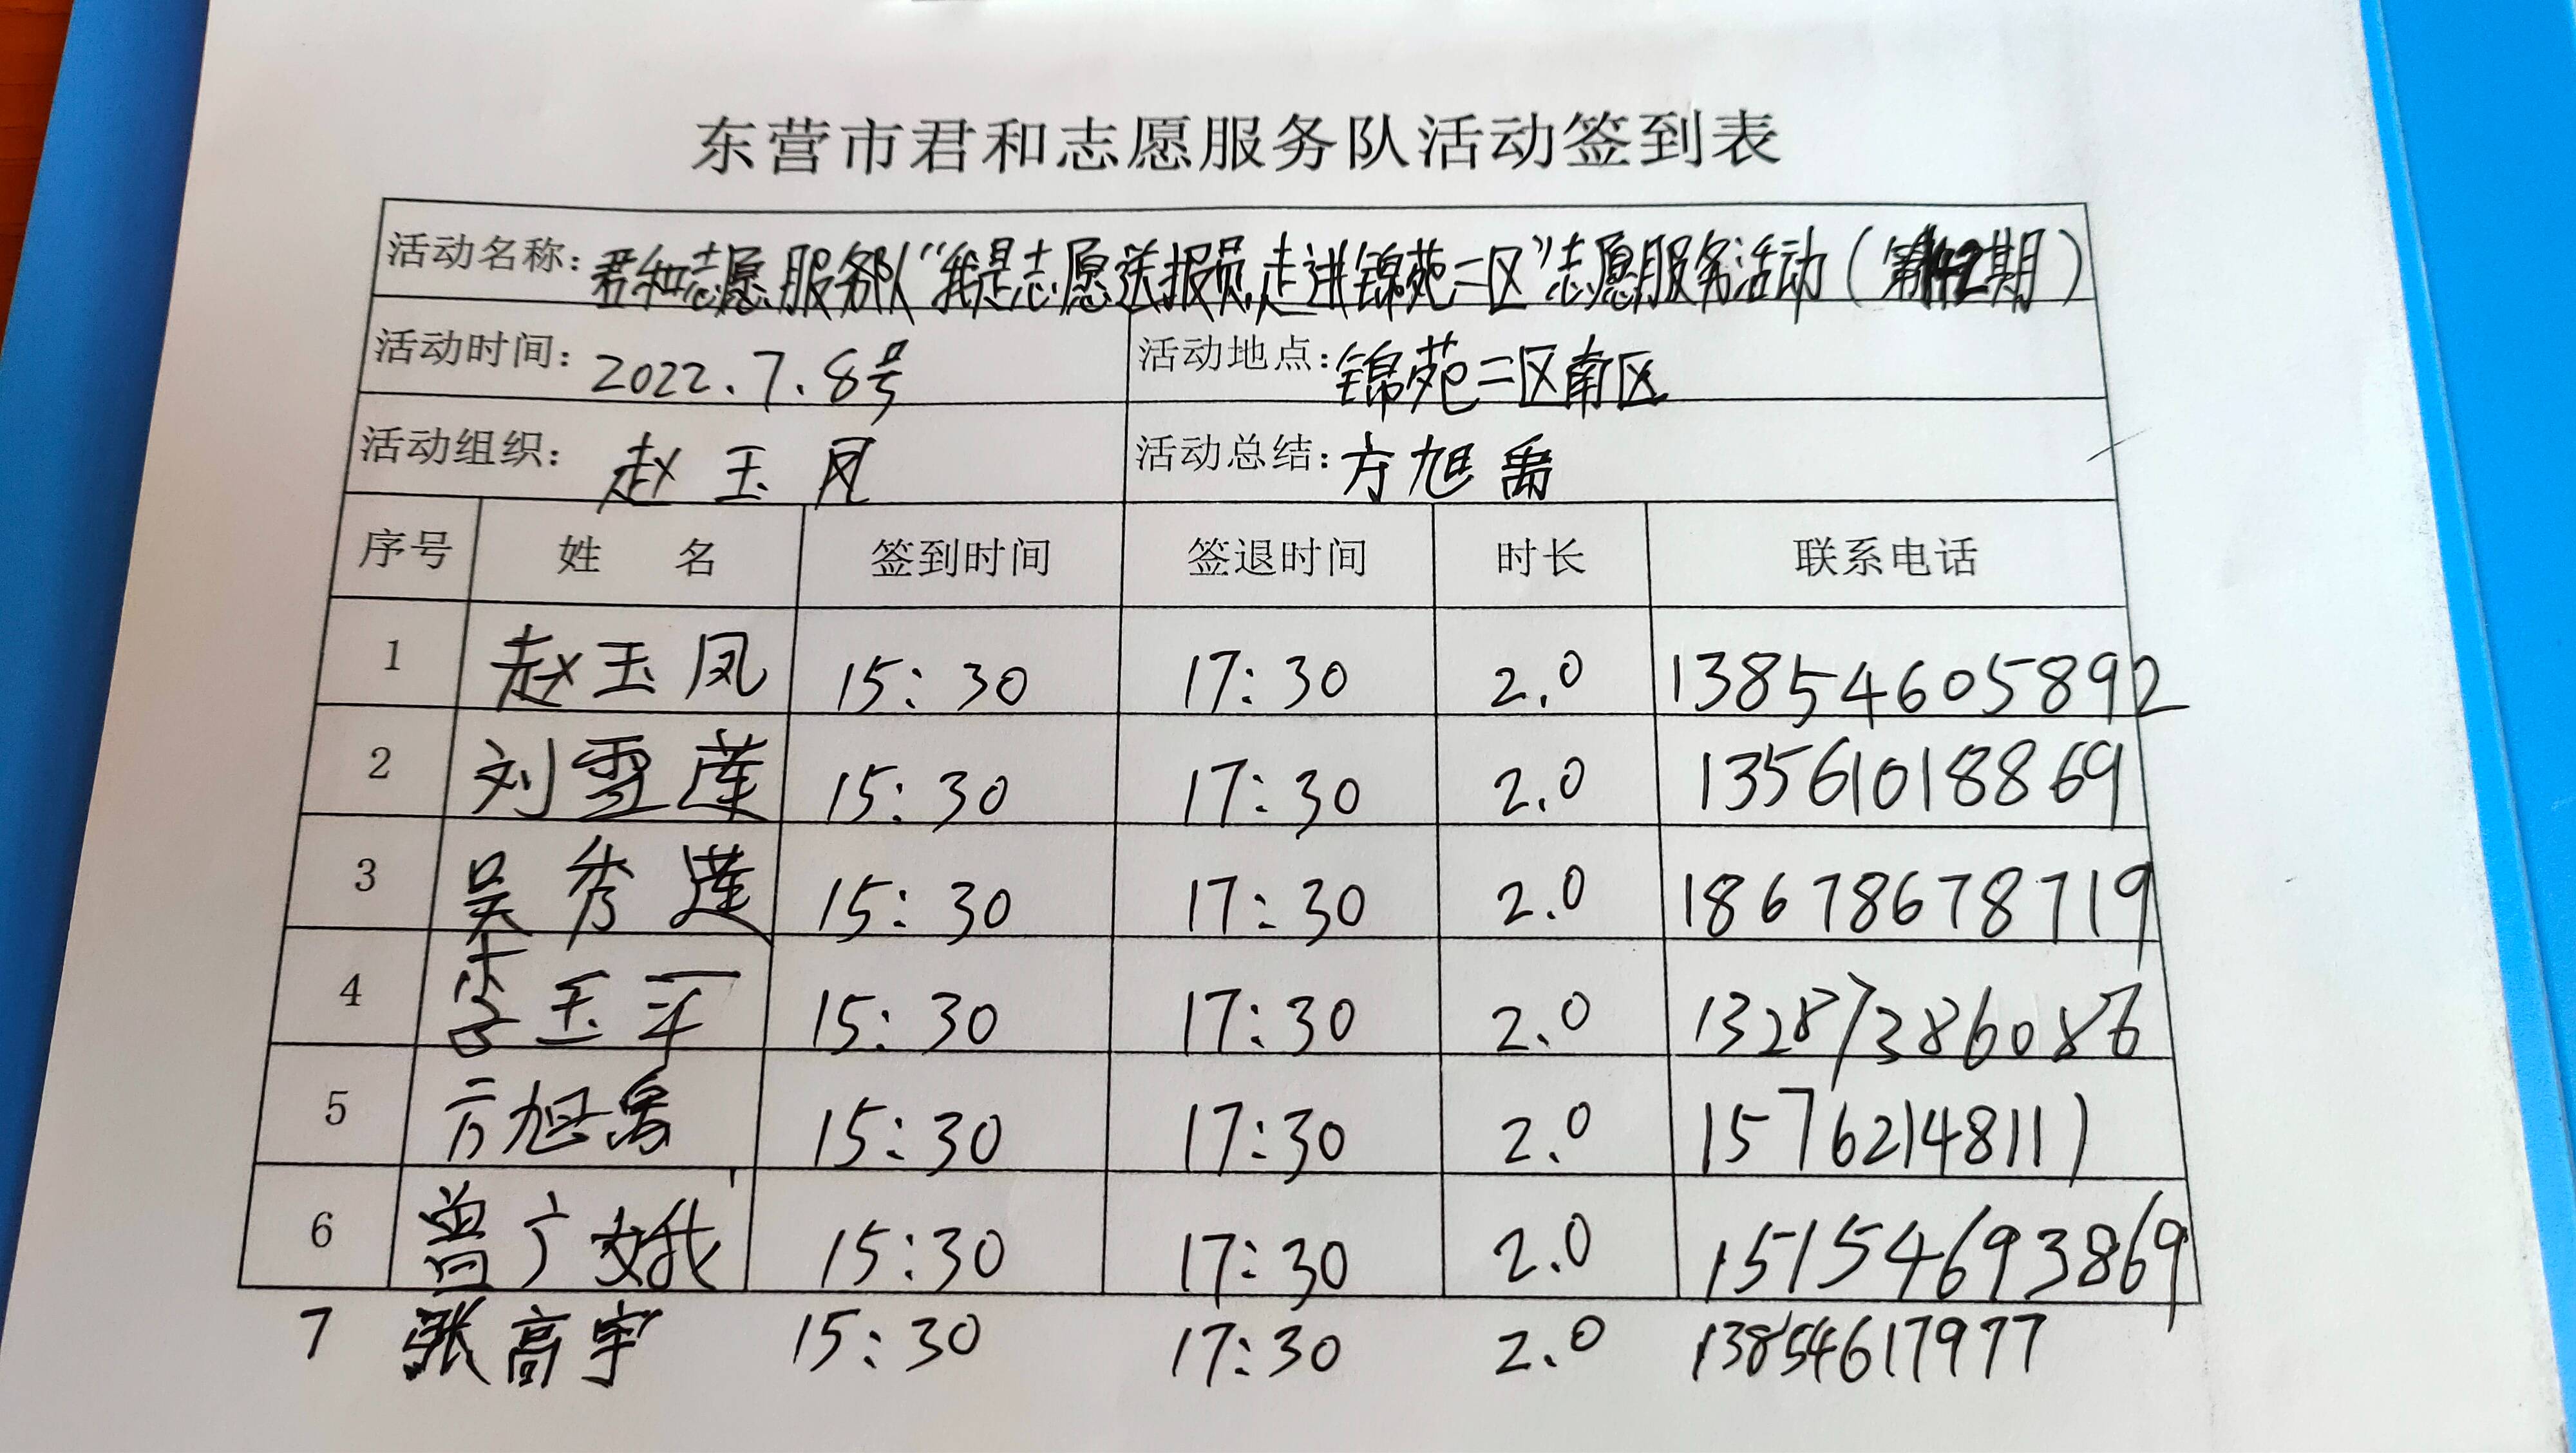 东营市君和志愿服务队活动签到表
活动名称：君和志愿服务队“我是志愿送报员，走进锦苑二区”志愿服务活动（第42期）
活动时间：2022.7.8号 活动地点：锦苑二区南区
活动组织：赵玉凤 活动总结：方旭禹
序号 姓 名 签到时间 签退时间 时长 联系电话
1 赵玉凤 15:30 17:30 2.0 13854605892
2 刘雪莲 15:30 17:30 2.0 13561018869
3 吴秀莲 15:30 17:30 2.0 18678678719
4 李玉 15:30 17:30 2.0 13287386086
5 方旭禹 15:30 17:30 2.0 15762148111
6 曾广娥 15:30 17:30 2.0 15154693869
7 张高宇 15:30 17:30 2.0 13854617977